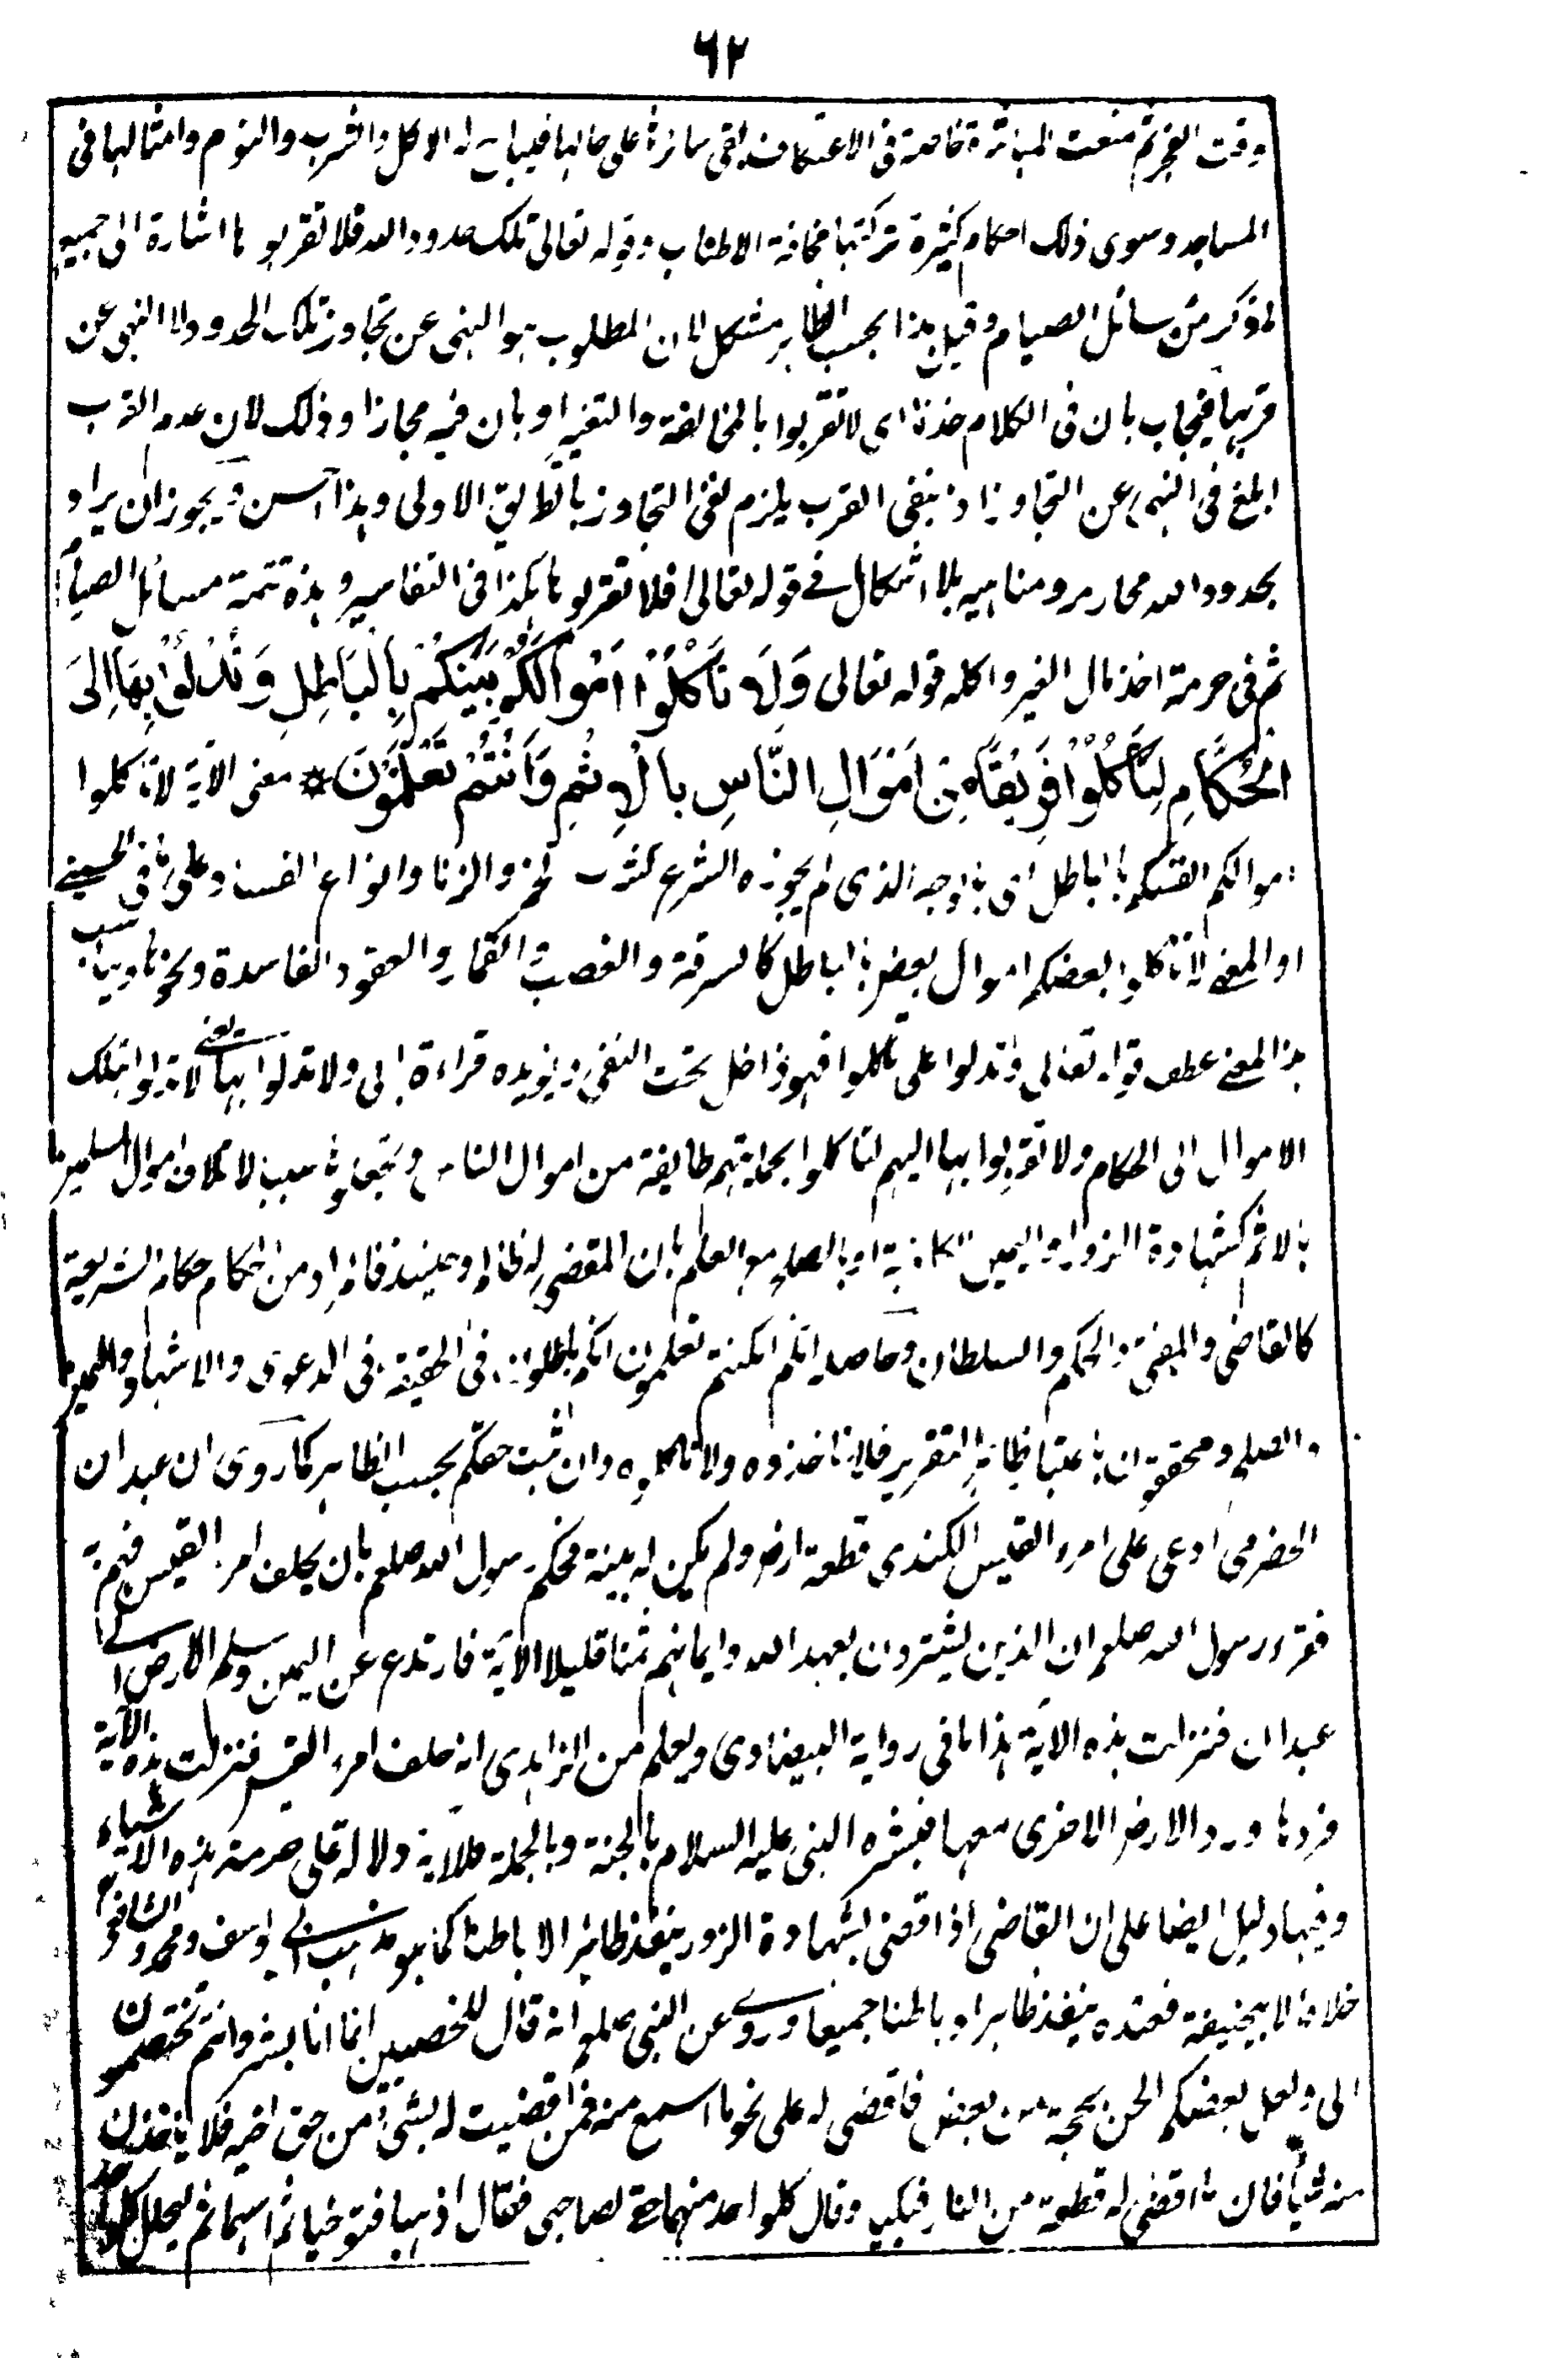 ٦٢
وقت الفجر ثم منعت المباشرة خاصة فى الاعتكاف بقى سائرة على حالها فيباح له الاكل والشرب والنوم وامثالها فى
المساجد وسوى ذلك احكام كثيرة تركتها مخافة الاطناب وقوله تعالى تلك حدود الله فلا تقربوها اشارة الى جميع
ما ذكر من مسائل الصيام وقيل هذا بحسب الظاهر مشكل لان المطلوب هو النهى عن تجاوز تلك الحدود لا النهى عن
قربها فيجاب بان فى الكلام حذفا اى لا تقربوا بالمخالفة والتغيير او بان فيه مجازا وذلك لان عدم القرب
ابلغ فى النهى عن التجاوز اذ بنفى القرب يلزم نفى التجاوز بالطريق الاولى وهذا احسن ويجوز ان يراد
بحدود الله محارمه ومناهيه بلا اشكال فى قوله تعالى فلا تقربوها هكذا فى التفاسير وهذه تتمة مسائل الصيام
ثم فى حرمة اخذ مال الغير واكله قوله تعالى وَلَا تَأْكُلُوْا اَمْوَالَكُمْ بَيْنَكُمْ بِالْبَاطِلِ وَتُدْلُوْا بِهَا اِلَى
الْحُكَّامِ لِتَأْكُلُوْا فَرِيْقًا مِنْ اَمْوَالِ النَّاسِ بِالْاِثْمِ وَاَنْتُمْ تَعْلَمُوْنَ * معنى الآية لا تأكلوا
اموالكم انفسكم بالباطل اى بالوجه الذى لم يجوزه الشرع كشرب الخمر والزنا وانواع الفساد على ما فى الحسينى
او المعنى لا تأكلوا بعضكم اموال بعض بالباطل كالسرقة والغصب والقمار والعقود الفاسدة ونحوها ويناسب
هذا المعنى عطف قوله تعالى وتدلوا على تأكلوا فهو داخل تحت النفى ويؤيده قراءة ابى ولا تدلوا بها يعنى لا تدلوا بتلك
الاموال الى الحكام ولا تقربوا بها اليهم لتأكلوا بحمايتهم طايفة من اموال الناس وتجعلوه سببا لاتلاف اموال المسلمين
بالاثم كشهادة الزور او اليمين الكاذبة او بالصلح مع العلم بان المقضى له ظالم وحينئذ فالمراد من الحكام حكام الشريعة
كالقاضى والمفتى والحكم والسلطان وحاصله انكم ان كنتم تعلمون انكم مبطلون فى الحقيقة فى الدعوى والاشهاد واليمين
والصلح ومحقون باعتبار ظاهر التقرير فلا تاخذوه ولا تاكلوه وان ثبت حقكم بحسب الظاهر كما روى ان عبدان
الحضرمى ادعى على امرء القيس الكندى قطعة ارض ولم يكن له بينة فحكم رسول الله صلعم بان يحلف امرء القيس فهم به
فقرء رسول الله صلعم ان الذين يشترون بعهد الله وايمانهم ثمنا قليلا الآية فارتدع عن اليمين وسلم الارض الى
عبدان فنزلت هذه الآية هذا ما فى رواية البيضاوى ويعلم من الزاهدى انه حلف امرء القيس فنزلت هذه الآية
فردها ورد الارض الاخرى معها فبشره النبى عليه السلام بالجنة وبالجملة فللآية دلالة على حرمة هذه الاشياء
وفيها دليل ايضا على ان القاضى اذا قضى بشهادة الزور ينفذ ظاهرا لا باطنا كما هو مذهب ابى يوسف ومحمد والشافعى
خلافا لابيحنيفة فعنده ينفذ ظاهرا وباطنا جميعا وروى عن النبى صلعم انه قال للخصمين انما انا بشر وانتم تختصمون
الى ولعل بعضكم الحن بحجة من بعض فاقضى له على نحو ما اسمع منه فمن قضيت له بشئ من حق اخيه فلا ياخذن
منه شيأ فان ما اقضى له قطعة من النار فبكيا وقال كل واحد منهما حقى لصاحبى فقال اذهبا فتوخيا ثم استهما ثم ليحلل كل واحد